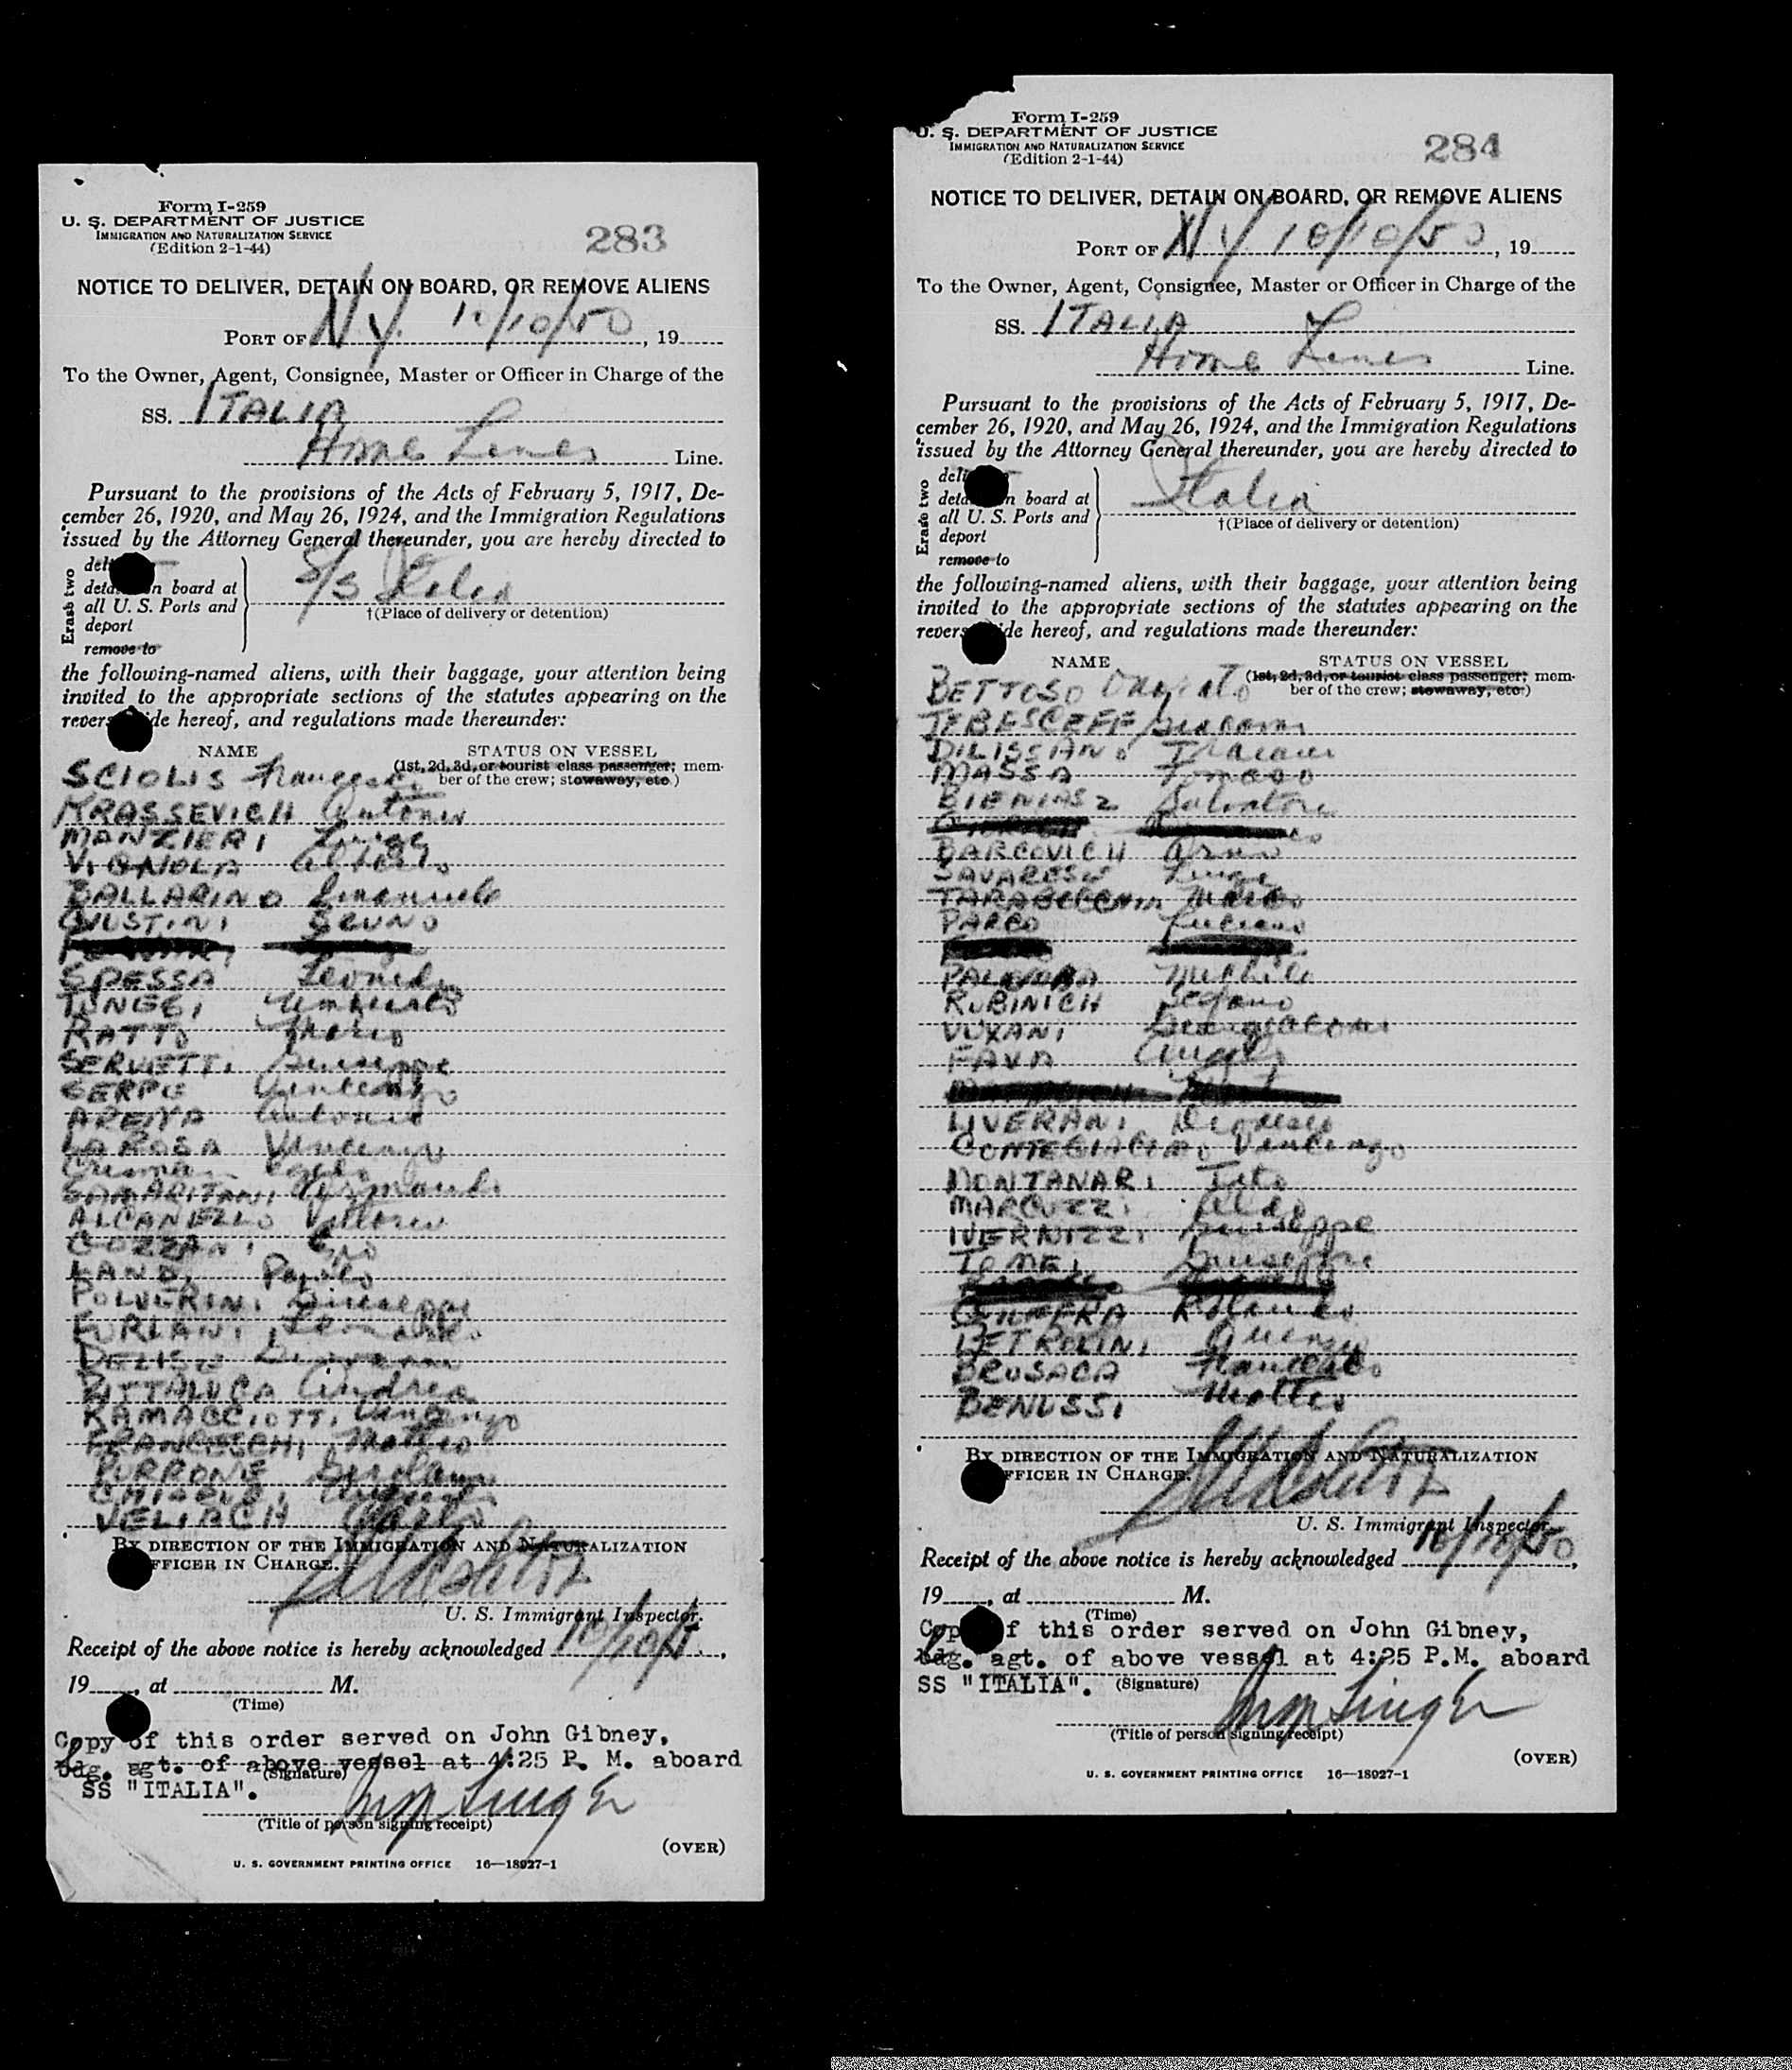 Form I-259
U. S. DEPARTMENT OF JUSTICE
IMMIGRATION AND NATURALIZATION SERVICE
(Edition 2-1-44)
283
NOTICE TO DELIVER, DETAIN ON BOARD, OR REMOVE ALIENS
PORT OF N Y. 10/10/50, 19
To the Owner, Agent, Consignee, Master or Officer in Charge of the
SS. ITALIA
Home Lines Line.
Pursuant to the provisions of the Acts of February 5, 1917, De-
cember 26, 1920, and May 26, 1924, and the Immigration Regulations
issued by the Attorney General thereunder, you are hereby directed to
Erase two
n board at
all U. S. Ports and
deport
remove to
S/S Italia
†(Place of delivery or detention)
the following-named aliens, with their baggage, your attention being
invited to the appropriate sections of the statutes appearing on the
revers ide hereof, and regulations made thereunder:
NAME STATUS ON VESSEL
(1st, 2d, 3d, or tourist class passenger; mem-
ber of the crew; stowaway, etc.)
SCIOLIS Francesco
KRASSEVICH Antonio
MANZIERI Luigi
VIGNOLA Alberto
BALLARINO Emanuele
GIUSTINI BRUNO
SPESSA Leonida
Umberto
RATTO Mario
SERVETTI Giuseppe
SERPE Vincenzo
ARENA Antonio
LA ROSA Vincenzo
SAMARITANI
Vittorio
GOZZANI
LANDI Paolo
POLVERINI Giuseppe
FURLANI
Giovanni
PITTALUCA Andrea
RAMACCIOTTI Vincenzo
FRANCESCHI Matteo
PURRONE Girolamo
VELIACH Carlo
BY DIRECTION OF THE IMMIGRATION AND NATURALIZATION
FFICER IN CHARGE.
U. S. Immigrant Inspector.
Receipt of the above notice is hereby acknowledged 10/10/5,
19, at M.
(Time)
Copy of this order served on John Gibney,
bdg. agt. of above vessel at 4:25 P. M. aboard
(Signature)
SS "ITALIA".
(Title of person signing receipt)
(OVER)
U. S. GOVERNMENT PRINTING OFFICE 16—18927-1
Form I-259
U. S. DEPARTMENT OF JUSTICE
IMMIGRATION AND NATURALIZATION SERVICE
(Edition 2-1-44)
284
NOTICE TO DELIVER, DETAIN ON BOARD, OR REMOVE ALIENS
PORT OF N Y 10/10/50, 19
To the Owner, Agent, Consignee, Master or Officer in Charge of the
SS. ITALIA
Home Lines Line.
Pursuant to the provisions of the Acts of February 5, 1917, De-
cember 26, 1920, and May 26, 1924, and the Immigration Regulations
issued by the Attorney General thereunder, you are hereby directed to
Erase two
n board at
all U. S. Ports and
deport
remove to
Italia
†(Place of delivery or detention)
the following-named aliens, with their baggage, your attention being
invited to the appropriate sections of the statutes appearing on the
revers ide hereof, and regulations made thereunder:
NAME STATUS ON VESSEL
(1st, 2d, 3d, or tourist class passenger; mem-
ber of the crew; stowaway, etc.)
BETTOSO
Giacomo
MASSA Tomaso
BIENIASZ Salvatore
BARCOVICH
SAVARESE Luigi
Marco
PARCO Luciano
PALOMBA Michele
RUBINICH Stefano
VUXANI
FAVA Angelo
LIVERANI
CONTEGIACOMO Vincenzo
MONTANARI Tito
MARCUZZI Aldo
IVERNIZZI Giuseppe
TOMEI Giuseppe
PETROLINI
BRUSACA Francesco
BENUSSI Matteo
BY DIRECTION OF THE IMMIGRATION AND NATURALIZATION
FFICER IN CHARGE.
U. S. Immigrant Inspector.
Receipt of the above notice is hereby acknowledged 10/10/50,
19, at M.
(Time)
Cop f this order served on John Gibney,
bdg. agt. of above vessel at 4:25 P.M. aboard
SS "ITALIA". (Signature)
(Title of person signing receipt)
(OVER)
U. S. GOVERNMENT PRINTING OFFICE 16—18927-1